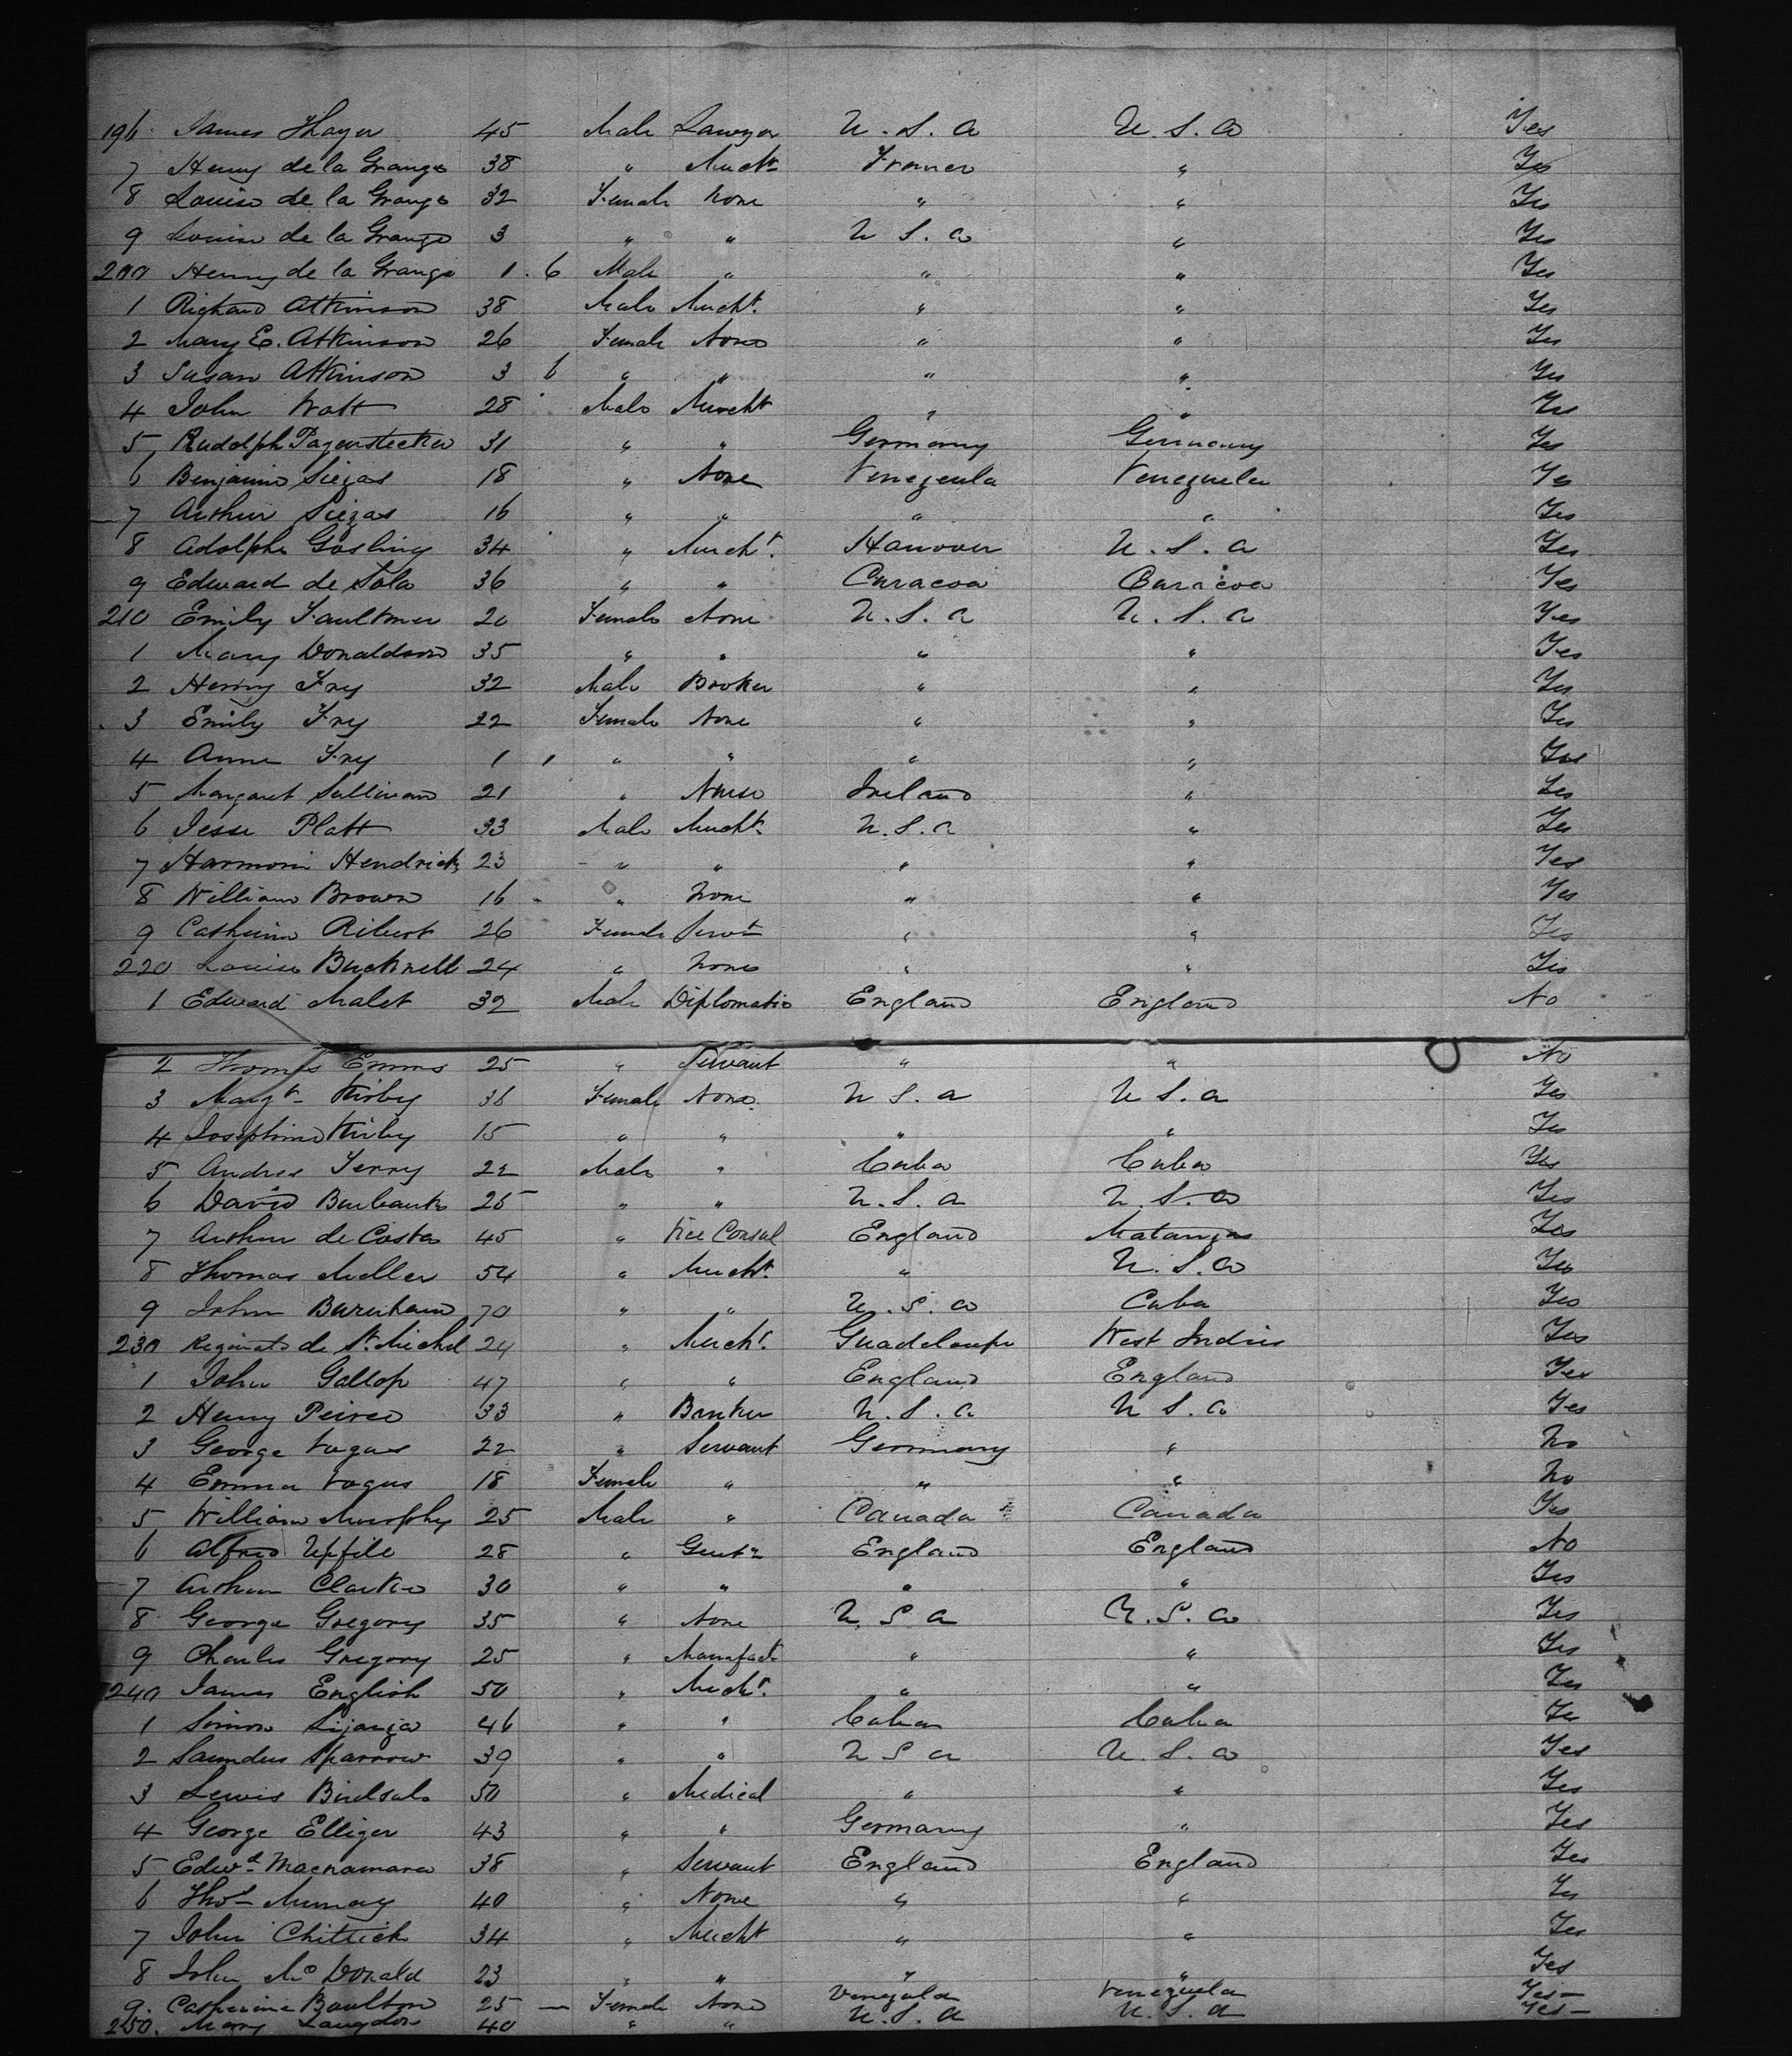 196 James Thayer 45 Male Lawyer U.S.A U.S.A Yes
7 Henry de la Grange 38 " Mercht France " Yes
8 Louise de la Grange 32 Female None " " Yes
9 Louise de la Grange 3 " " U.S.A " Yes
200 Henry de la Grange 1.6 Male " " " Yes
1 Richard Atkinson 38 Male Mercht. " " Yes
2 Mary E. Atkinson 26 Female None " " Yes
3 Susan Atkinson 3 6 " " " " Yes
4 John Watt 28 Male Mercht " " Yes
5 Rudolph Pagenstecker 31 " " Germany Germany Yes
6 Benjamin Siezas 18 " None Venezeula Venezuela Yes
7 Arthur Siezas 16 " " " " Yes
8 Adolphe Gosling 34 " Mercht. Hanover U.S.A Yes
9 Edward de Sola 36 " " Curacoa Curacoa Yes
210 Emily Faulkner 20 Female None U.S.A U.S.A Yes
1 Mary Donaldson 35 " " " " Yes
2 Henry Fry 32 Male Broker " " Yes
3 Emily Fry 22 Female None " " Yes
4 Anne Fry 1 1 " " " " Yes
5 Margaret Sullivan 21 " Nurse Ireland " Yes
6 Jesse Platt 33 Male Mercht U.S.A " Yes
7 Harmon Hendricks 23 " " " " Yes
8 William Brown 16 " None " " Yes
9 Catherine 26 Female Servt " " Yes
220 Louise Bucknell 24 " None " " Yes
1 Edward Malet 32 Male Diplomatic England England No
2 Thomas Emms 25 " Servant " " No
3 Margt Kirby 36 Female None. U S.A U S.A Yes
4 Josephine Kirby 15 " " " " Yes
5 Andres Terry 22 Male " Cuba Cuba Yes
6 David Burbank 25 " " U.S.A U.S.A Yes
7 Arthur de Costa 45 " Vice Consul England Matanzas Yes
8 Thomas Meller 54 " Mercht. " U.S.A Yes
9 John Burnham 70 " " U.S.A Cuba Yes
230 de St Michel 24 " Mercht. Guadeloupe West Indies Yes
1 John Gallop 47 " " England England Yes
2 Henry Peirce 33 " Banker U.S.A U S.A Yes
3 George Vogus 22 " Servant Germany " No
4 Emma Vogus 18 Female " " " No
5 William Murphy 25 Male " Canada Canada Yes
6 Alfred Upfill 28 " Gentn England England No
7 Arthur Clarke 30 " " " " Yes
8 George Gregory 35 " None U S A U.S.A Yes
9 Charles Gregory 25 " Manufact " " Yes
240 James English 50 " Mercht. " " Yes
1 Simon 46 " " Cuba Cuba Yes
2 Saunders Sparrow 39 " " U S A U.S.A Yes
3 Lewis Birdsal 50 " Medical " " Yes
4 George Elliger 43 " " Germany " Yes
5 Edwd Macnamara 38 " Servant England England Yes
6 Thos Murray 40 " None " " Yes
7 John Chittick 34 " Mercht " " Yes
8 John McDonald 23 " " " " Yes
9. Catherine Boulton 25 — Female None Venezula Venezuela Yes—
250. Mary Langdon 40 " " U.S.A U.S.A Yes—